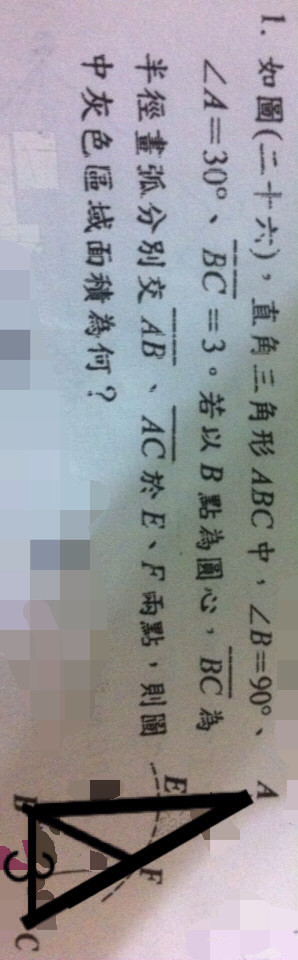 1. 如圖(二十六)，直角三角形 ABC 中，∠B=90°、
∠A=30°、BC=3。若以 B 點為圓心，BC 為
半徑畫弧分別交 AB、AC 於 E、F 兩點，則圖
中灰色區域面積為何？
A
E
F
B
3
C